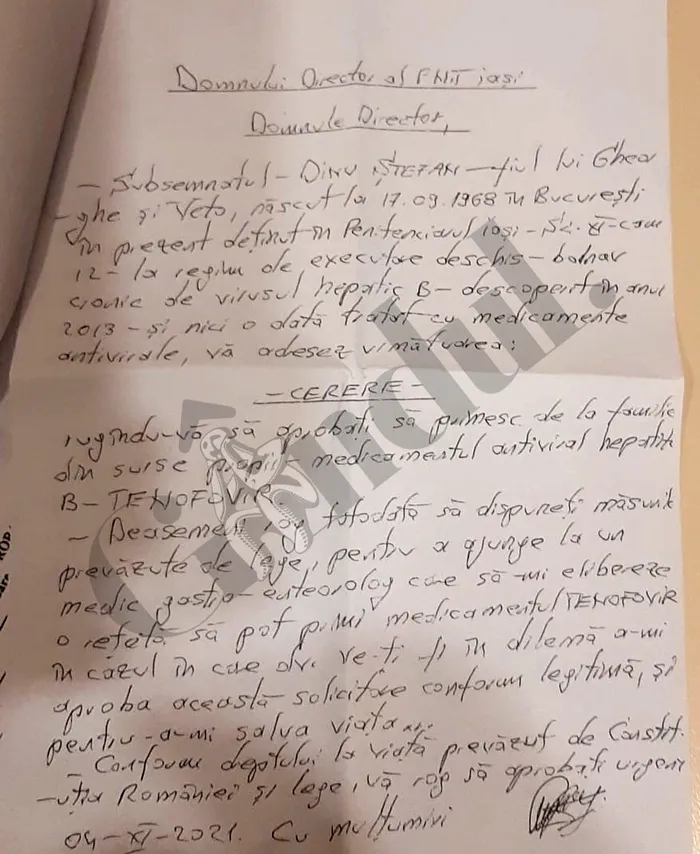 Domnului Director al PNT iași
Domnule Director,
- Subsemnatul - DINU ȘTEFAN - fiul lui Gheor
-ghe și Veta, născut la 17.09.1968 în București
în prezent deținut în Penitenciarul iași - XI - cam
12 - la regim de executare deschis - bolnav
cronic de virusul hepatic B - descoperit în anul
2013 - și nici o dată tratat cu medicamente
antivirale, vă adesez următoarea:
- CERERE -
rugîndu-vă, să aprobați să primesc de la familie
din surse proprii - medicamentul antiviral hepatita
B - TENOFOVIR
- Deasemeni rog totodată să dispuneți măsurile
prevăzute de lege, pentru a ajunge la un
medic gastro-enteorolog care să-mi elibereze
o rețetă să pot primi medicamentul TENOFOVIR
în cazul în care dv. ve-ți fi în dilemă a-mi
aproba această solicitare conform legitimă, și
pentru-a-mi salva viața...
- Conform dreptului la viață prevăzut de Constit-
-uția României și lege, vă rog să aprobați urgent
04-XI-2021. Cu mulțumiri
Gândul.